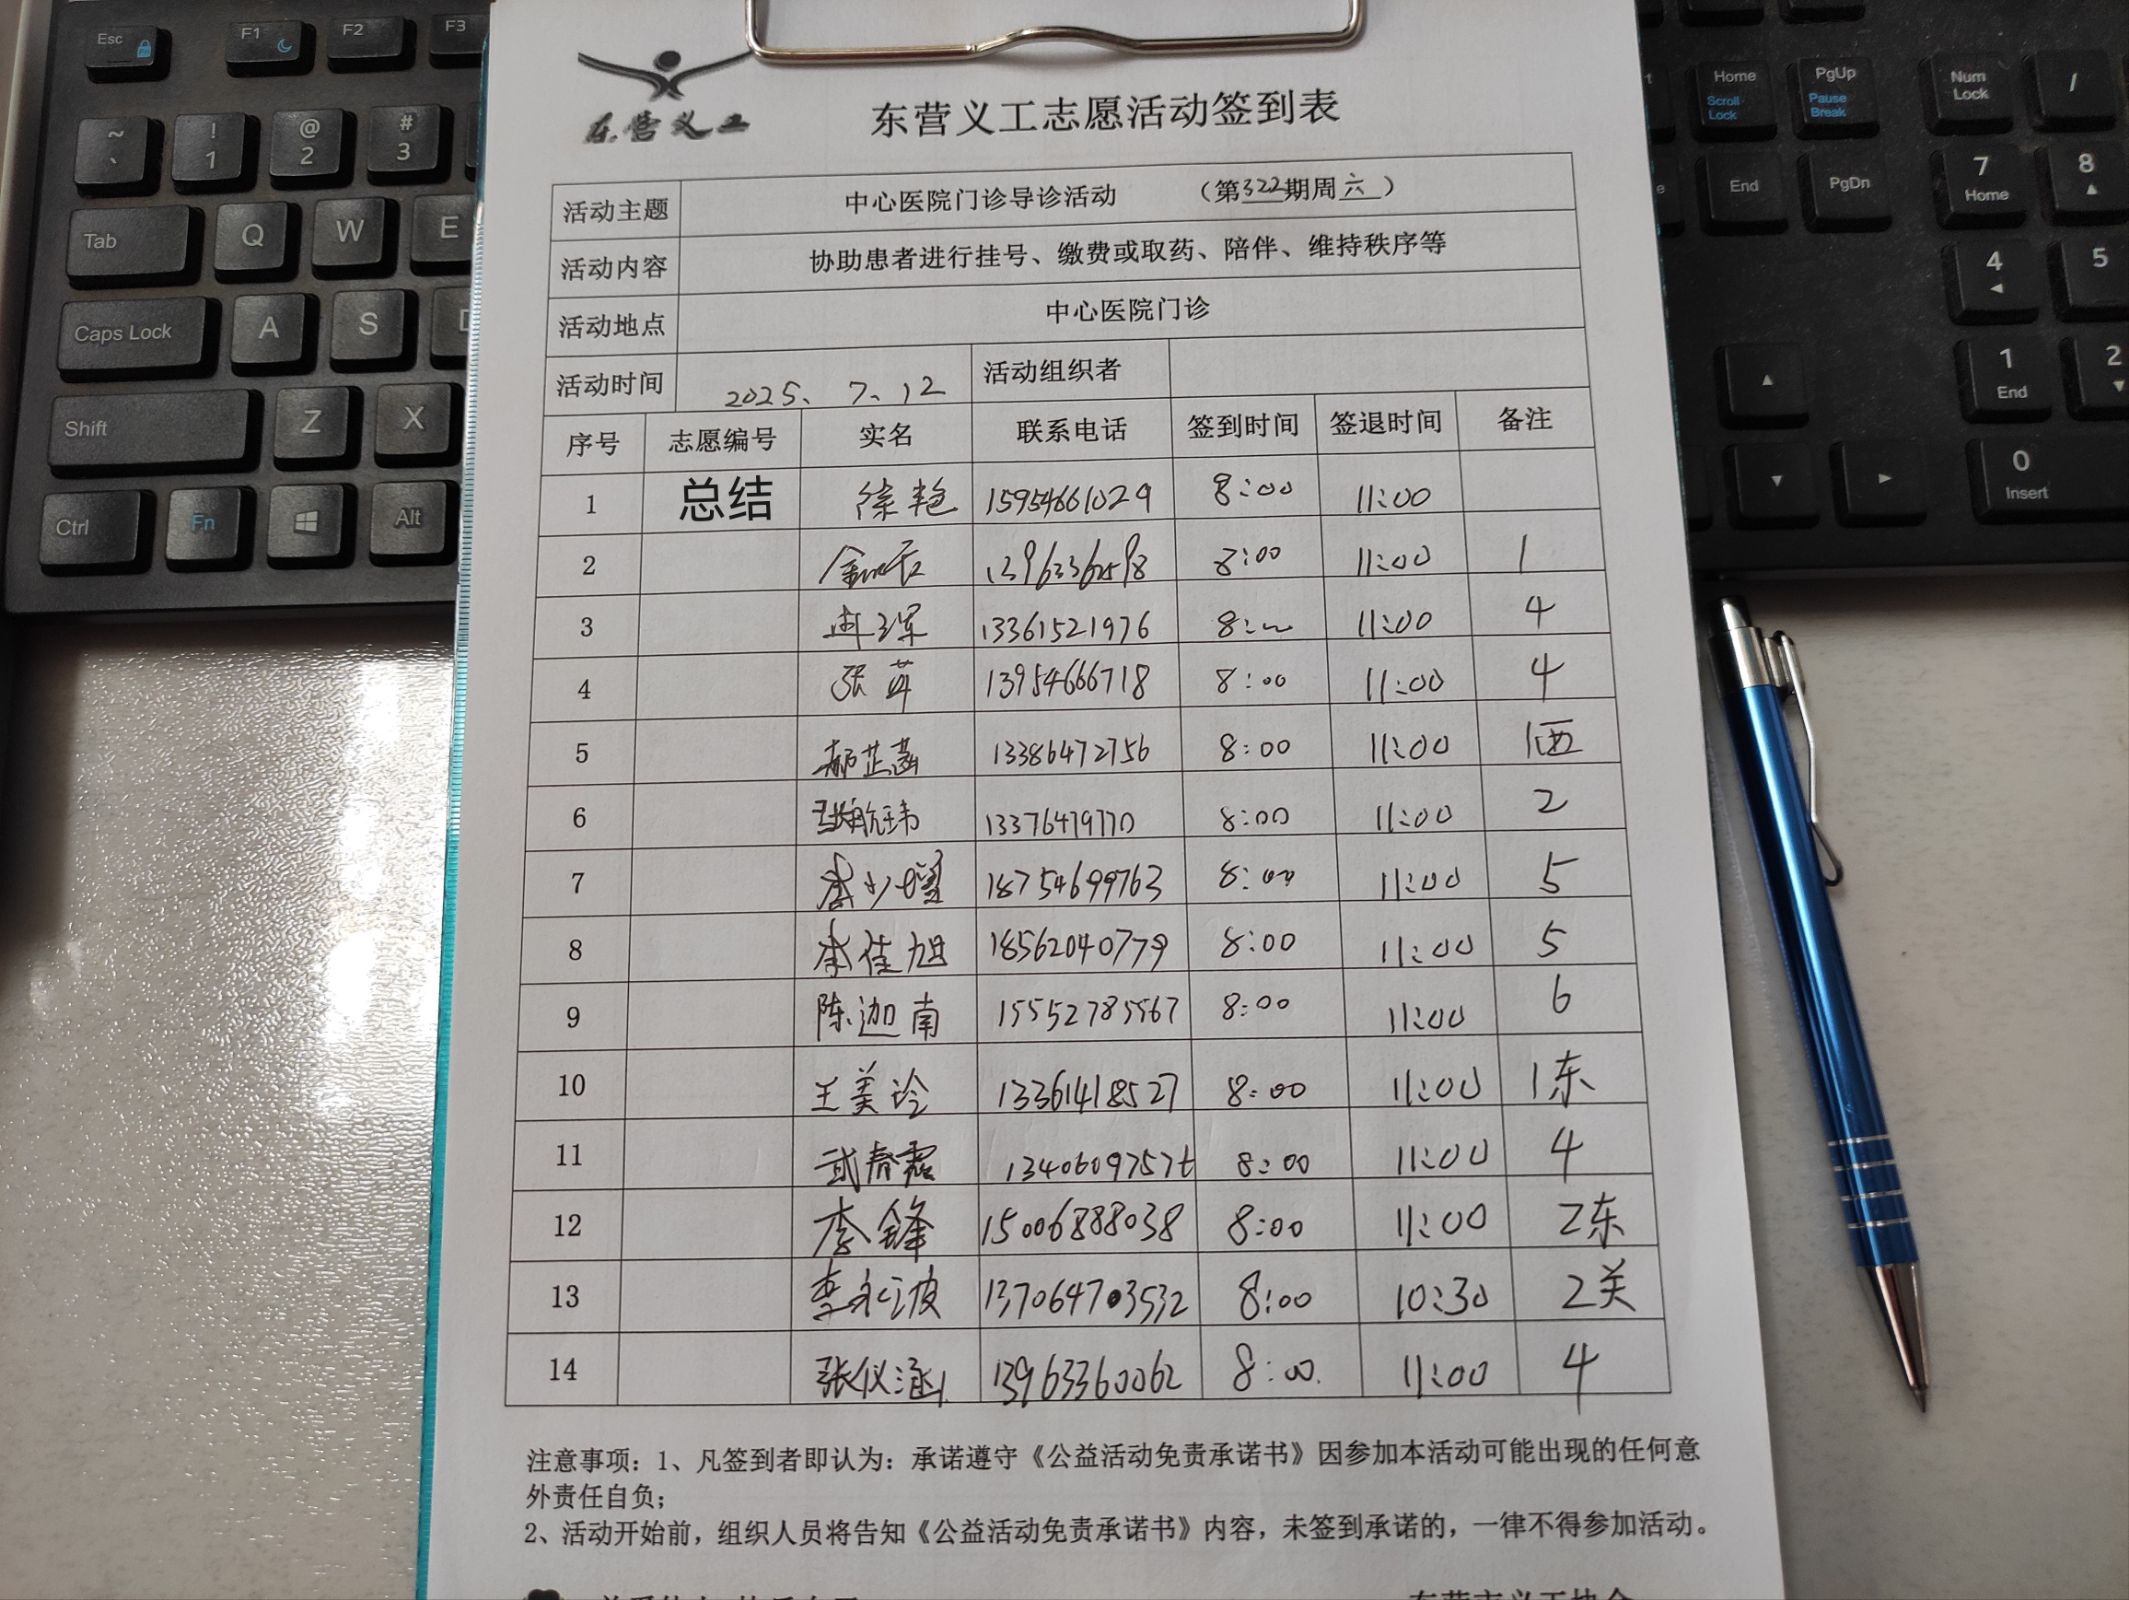 东营义工
东营义工志愿活动签到表
活动主题 中心医院门诊导诊活动 （第322期周六）
活动内容 协助患者进行挂号、缴费或取药、陪伴、维持秩序等
活动地点 中心医院门诊
活动时间 2025、7、12 活动组织者
序号 志愿编号 实名 联系电话 签到时间 签退时间 备注
1 总结 徐艳 15954661029 8:00 11:00
2 8:00 11:00 1
3 13361521976 8: 11:00 4
4 张苹 13954666718 8:00 11:00 4
5 郝芷菡 13386472756 8:00 11:00 1西
6 8:00 11:00 2
7 李少增 18754699763 8:00 11:00 5
8 李佳旭 18562040779 8:00 11:00 5
9 陈迦南 15552785567 8:00 11:00 6
10 王美玲 13361418527 8:00 11:00 1东
11 武春霞 8:00 11:00 4
12 李锋 15006888038 8:00 11:00 2东
13 李永波 13706473532 8:00 10:30 2关
14 张仪涵 13963360062 8:00 11:00 4
注意事项：1、凡签到者即认为：承诺遵守《公益活动免责承诺书》因参加本活动可能出现的任何意
外责任自负；
2、活动开始前，组织人员将告知《公益活动免责承诺书》内容，未签到承诺的，一律不得参加活动。
Esc F1 F2 F3
~ ` ! 1 @ 2 # 3
Tab Q W E
Caps Lock A S
Shift Z X
Ctrl Fn Alt
Home Scroll Lock PgUp Pause Break Num Lock /
End PgDn 7 Home 8
4 5
1 End 2
0 Insert